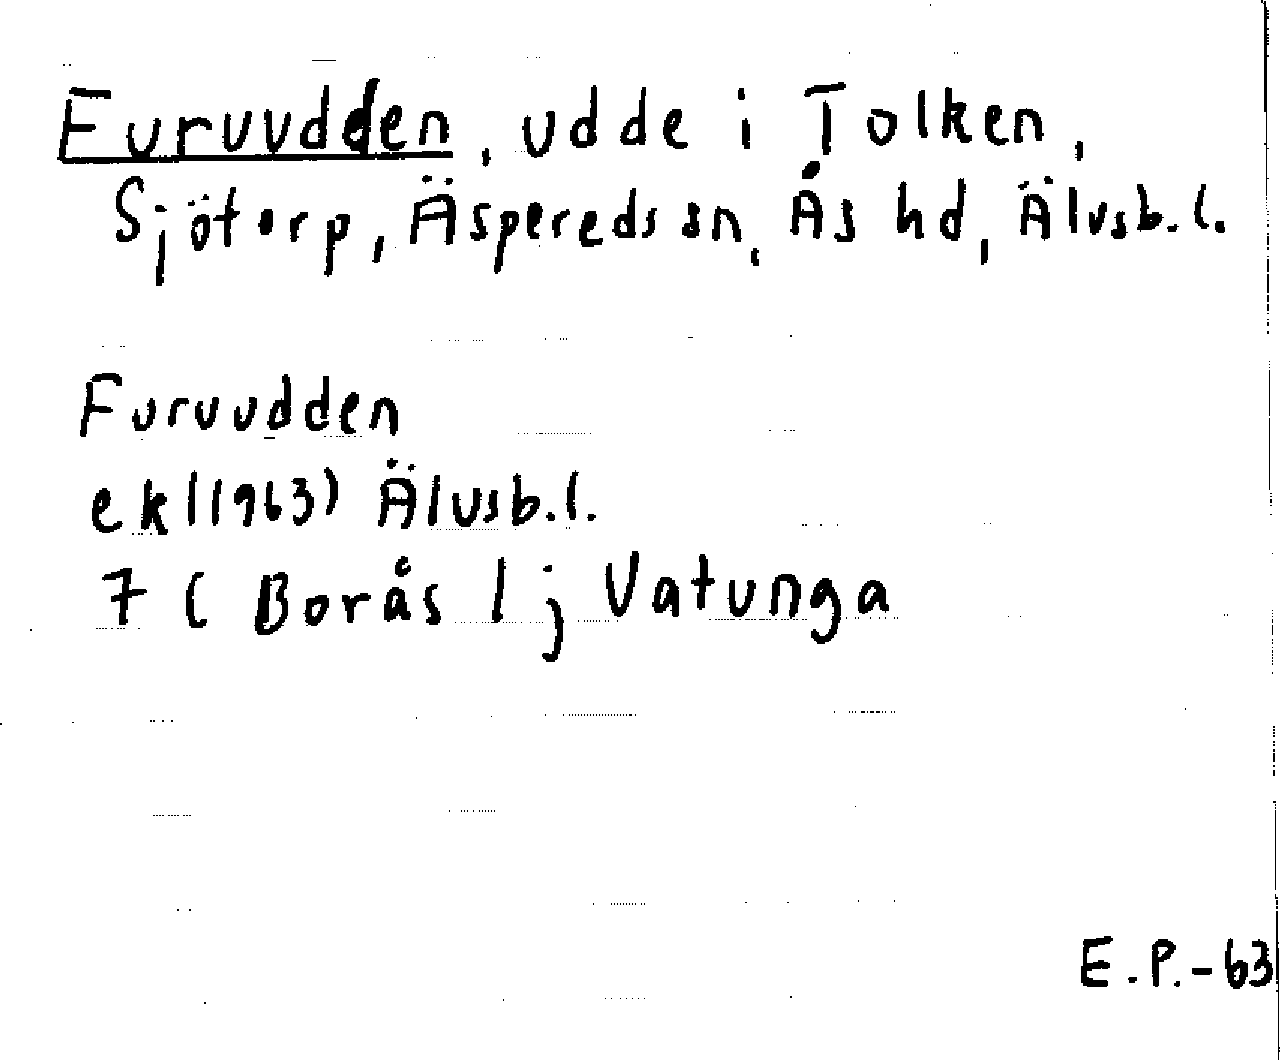 Furuudden, udde i Tolken,
Sjötorp, Äspereds sn, Ås hd, Älvsb. l.
Furuudden
ek (1963) Älvsb. l.
7 C Borås 1 j Vatunga
E.P.-63